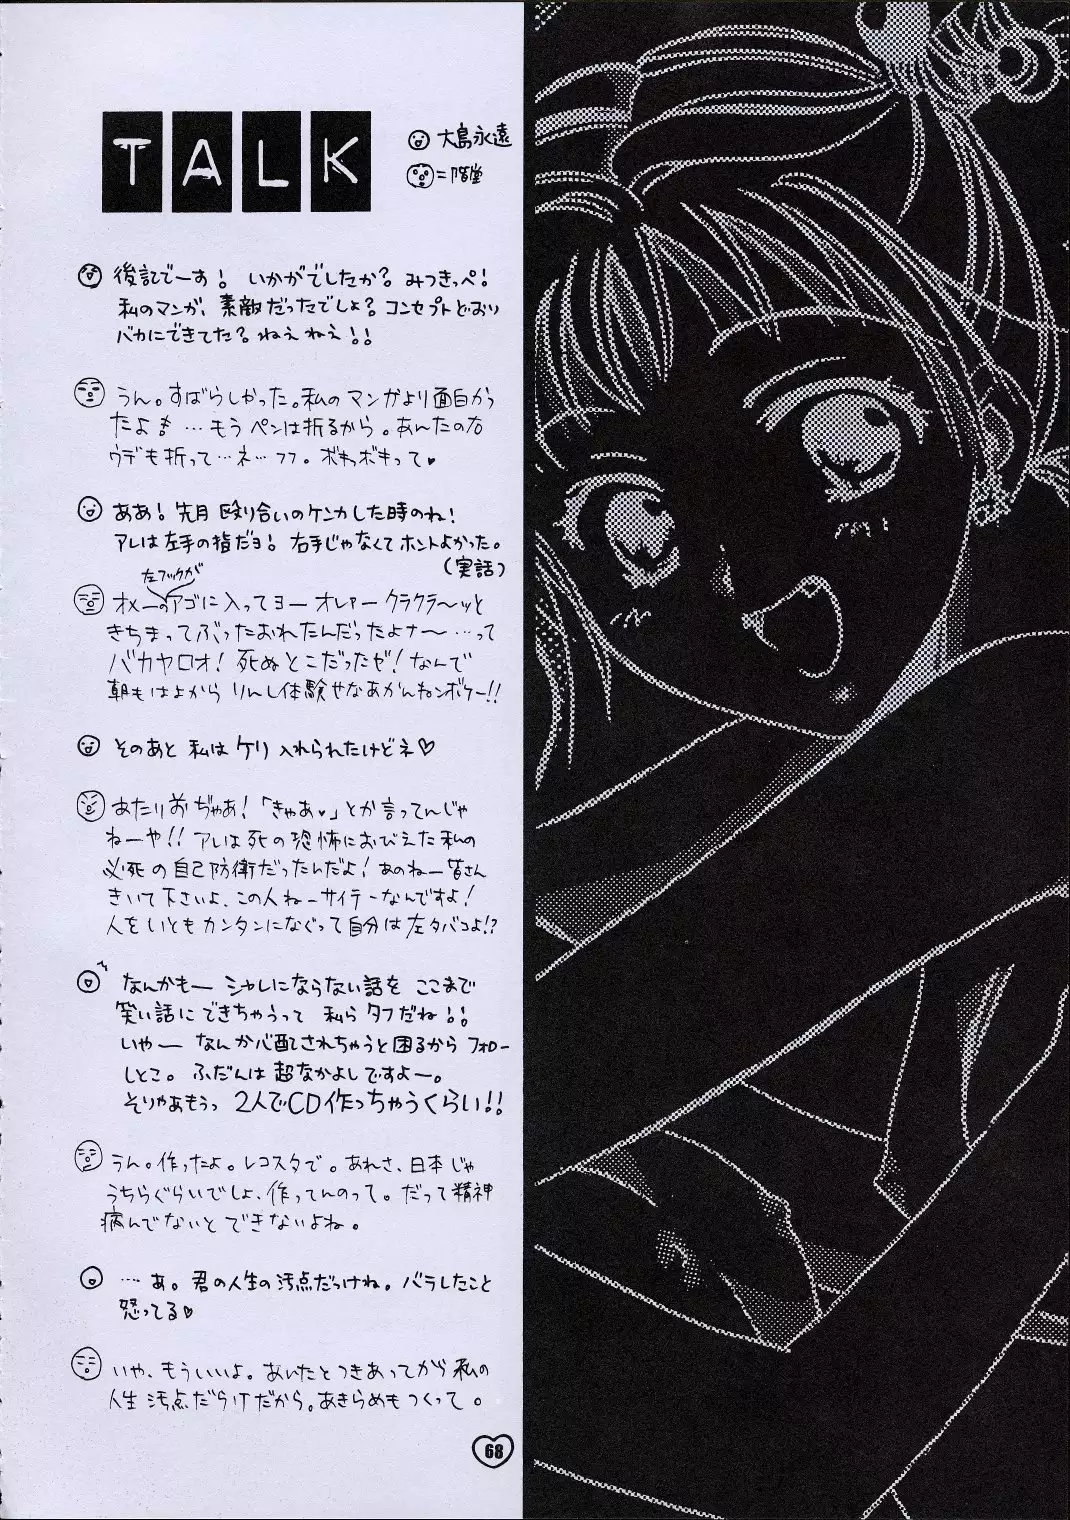 TALK
大島永遠
=階堂
後記でーす! いかがでしたか? みつきっぺ!
私のマンガ、素敵だったでしょ? コンセプトどおり
バカにできてた? ねえねえ!!
うん。すばらしかった。私のマンガより面白かっ
たよ …もうペンは折るから。あんたの右
ウデも折って…ネ…フフ。ボキボキって♥
ああ! 先月 殴り合いのケンカした時のね!
アレは左手の指だヨ! 右手じゃなくてホントよかった。
(実話)
左フックが
オメーのアゴに入ってヨー オレァー クラクラ〜ッと
きちまってぶったおれたんだったよナ〜…って
バカヤロオ! 死ぬとこだったゼ! なんで
朝もはよから りんし体験せなあかんねンボケー!!
そのあと 私は ケリ 入れられたけどネ♡
あたりまぢゃあ!「きゃあ♥」とか言ってんじゃ
ねーや!! アレは死の恐怖におびえた私の
必死の自己防衛だったんだよ! あのねー皆さん
きいて下さいよ、この人ねーサイテーなんですよ!
人をいともカンタンになぐって自分は左タバコよ!?
なんかもー シャレにならない話を ここまで
笑い話に できちゃうって 私ら タフだね!!
いやー なんか心配されちゃうと困るから フォロー
しとこ。 ふだんは 超なかよしですよー。
そりゃあもうっ 2人でCD作っちゃうくらい!!
うん。作ったよ。レコスタで。あれさ、日本じゃ
うちらぐらいでしょ、作ってんのって。だって精神
病んでないと できないよね。
…あ。君の人生の汚点だっけね。バラしたこと
怒ってる♡
いや、もういいよ。あんたとつきあってから 私の
人生 汚点だらけだから。あきらめもつくって。
68